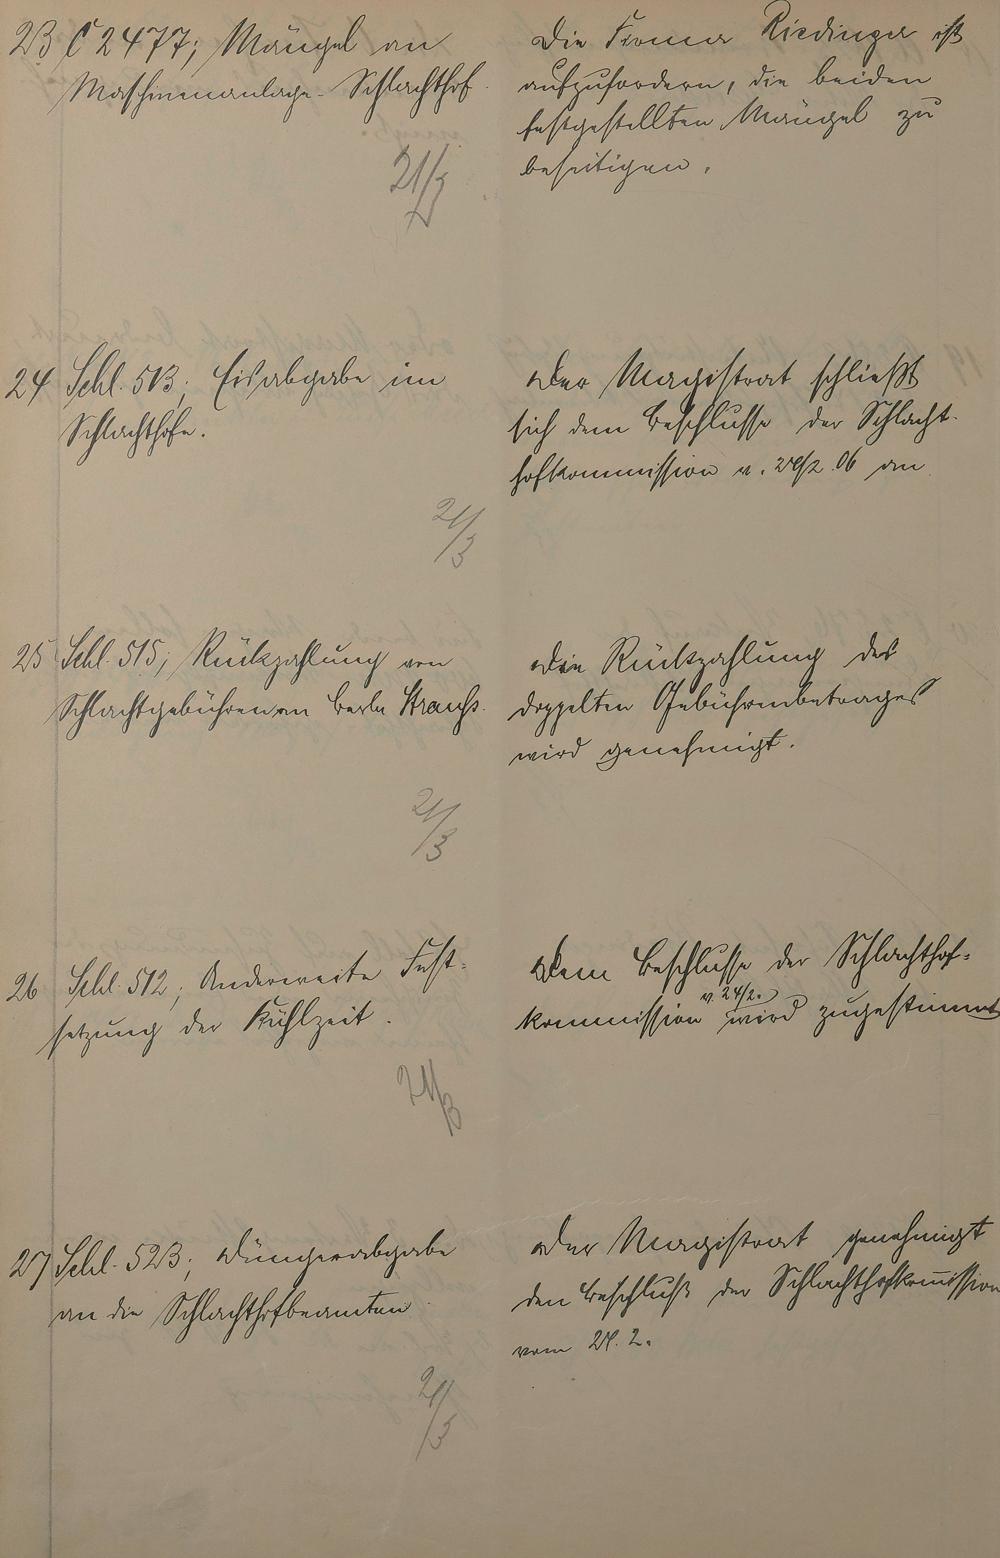 23 C 2477; Mängel an
Maschinenanlage Schlachthof
21/3
Die Firma Riedinger ist
aufzufordern, die beiden
festgestellten Mängel zu
beseitigen.
24 Schl. 513; Eisabgabe im
Schlachthofe.
21/3
Der Magistrat schließt
sich dem Beschlusse der Schlacht-
hofkommission v. 24/2. 06 an
25 Schl. 515; Rückzahlung von
Schlachtgebühren an Strauß.
21/3
Die Rückzahlung des
doppelten Gebührenbetrages
wird genehmigt.
26 Schl. 512; Anderweite Fest-
setzung der Kühlzeit.
21/3
Dem Beschlusse der Schlachthof-
kommission v. 24/2. wird zugestimmt
27 Schl. 523; Düngerabgabe
an die Schlachthofbeamten
21/3
Der Magistrat genehmigt
den Beschluß der Schlachthofkommission
vom 24. 2.